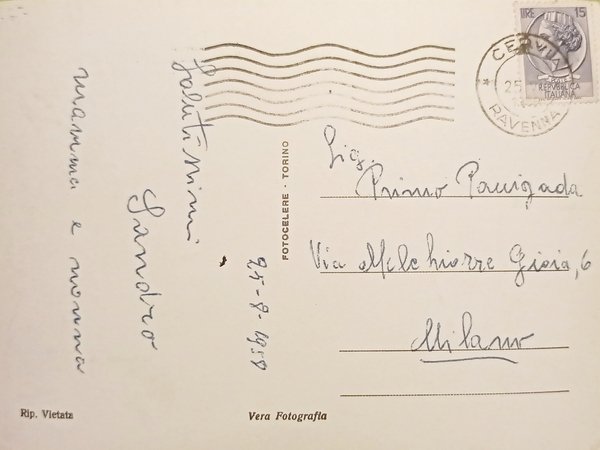 Salutissimi
Sandro
mamma e nonna
25-8-1958
FOTOCELERE - TORINO
LIRE 15
POSTE
REPVBBLICA
ITALIANA
CERVIA
25
* RAVENNA
Sig.
Primo Pavigada
Via Melchiorre Gioia, 6
Milano
Rip. Vietata
Vera Fotografia